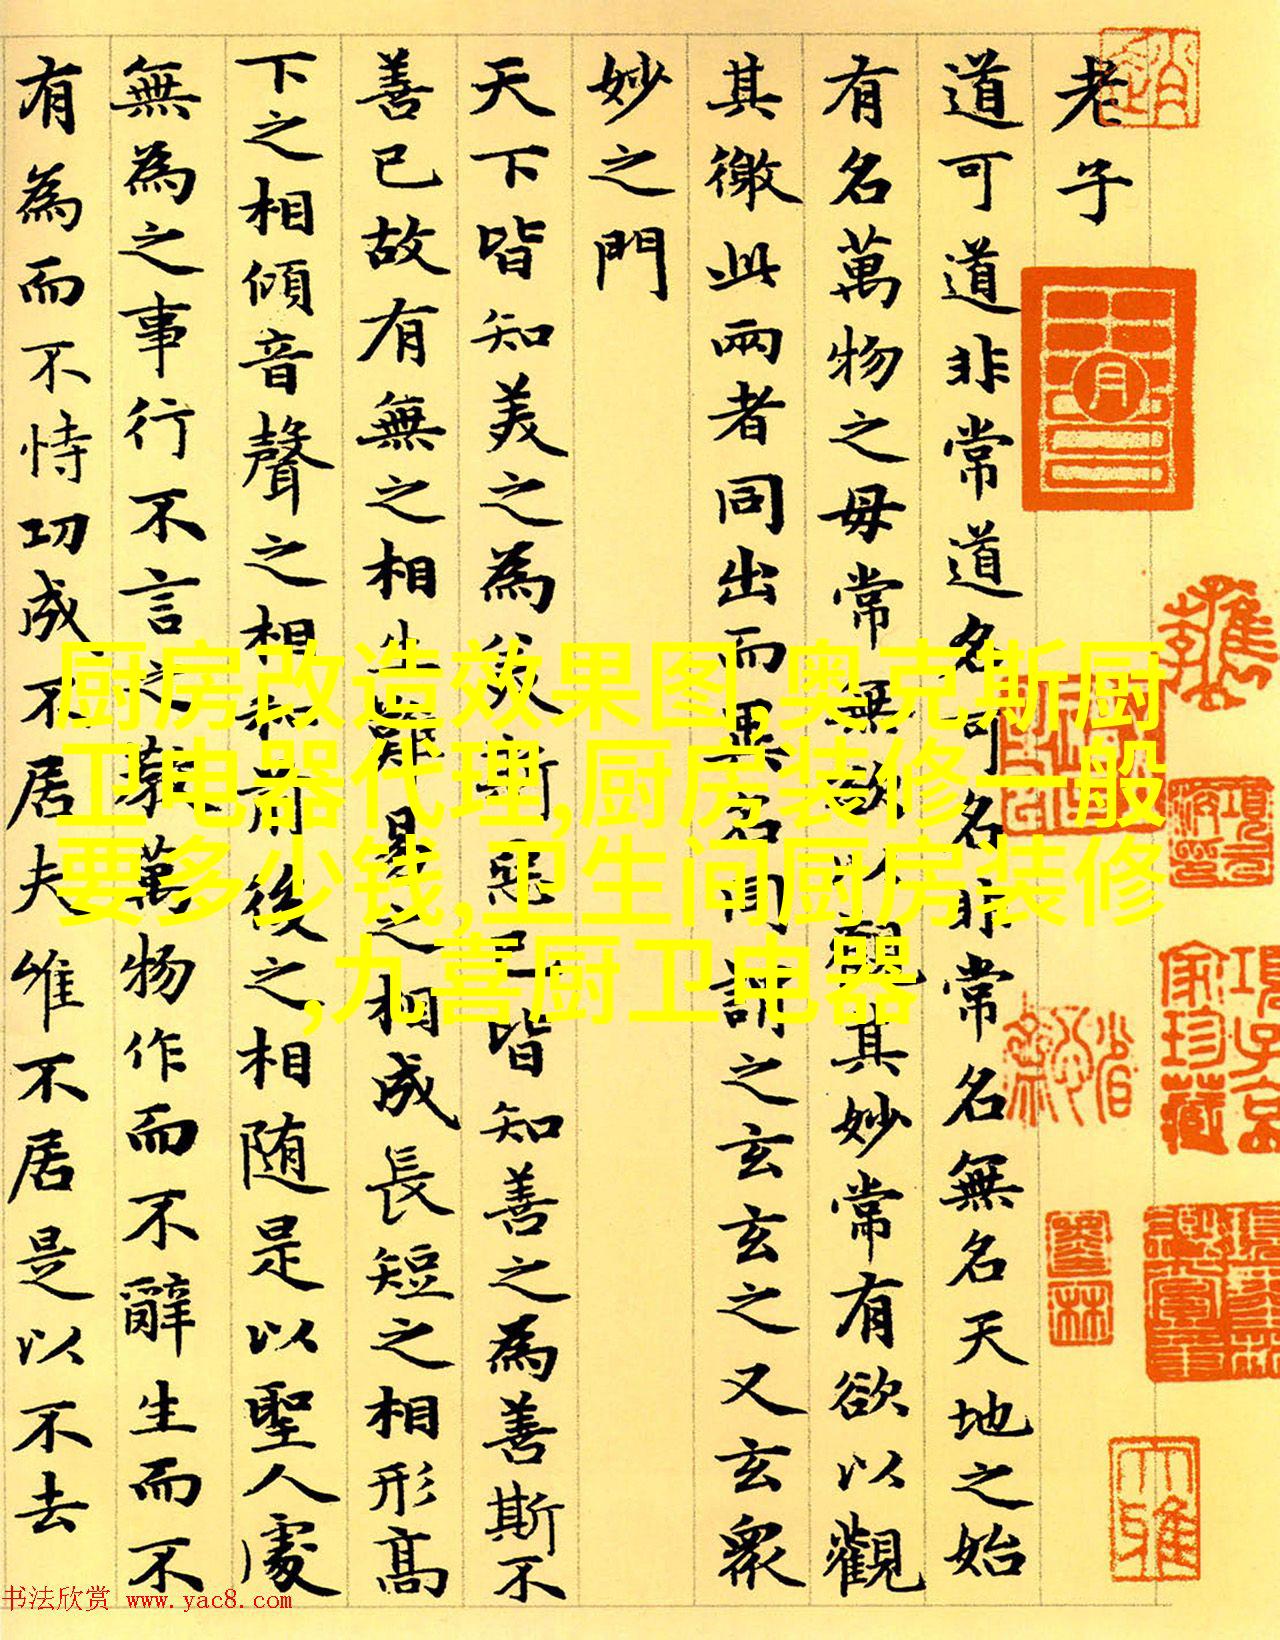 老子
道可道非常道名可名非常名無名天地之始
有名萬物之母常無欲以觀其妙常有欲以觀
其徼此兩者同出而異名同謂之玄玄之又玄衆
妙之門
天下皆知美之為美斯惡已皆知善之為善斯不
善已故有無之相生難易之相成長短之相形髙
下之相傾音聲之相和前後之相随是以聖人處
無為之事行不言之教萬物作而不辭生而不
有為而不恃功成不居夫惟不居是以不去
厨房改造效果图,奥克斯厨
卫电器代理,厨房装修一般
要多少钱,卫生间厨房装修
,九喜厨卫电器
項子京
家珍藏
书法欣赏 www.yac8.com